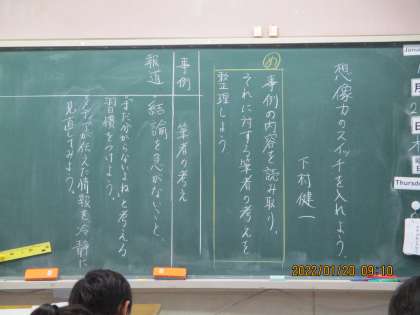 想像力のスイッチを入れよう
下村健一
め
事例の内容を読み取り、
それに対する筆者の考えを
整理しよう
事例
筆者の考え
報道
結論を急がないこと、
『まだ分からないよね』と考える
習慣をつけよう。
メディアが伝えた情報を冷静に
見直すみよう。
月
日
木
曜
Thursday
2022/01/20 09:10